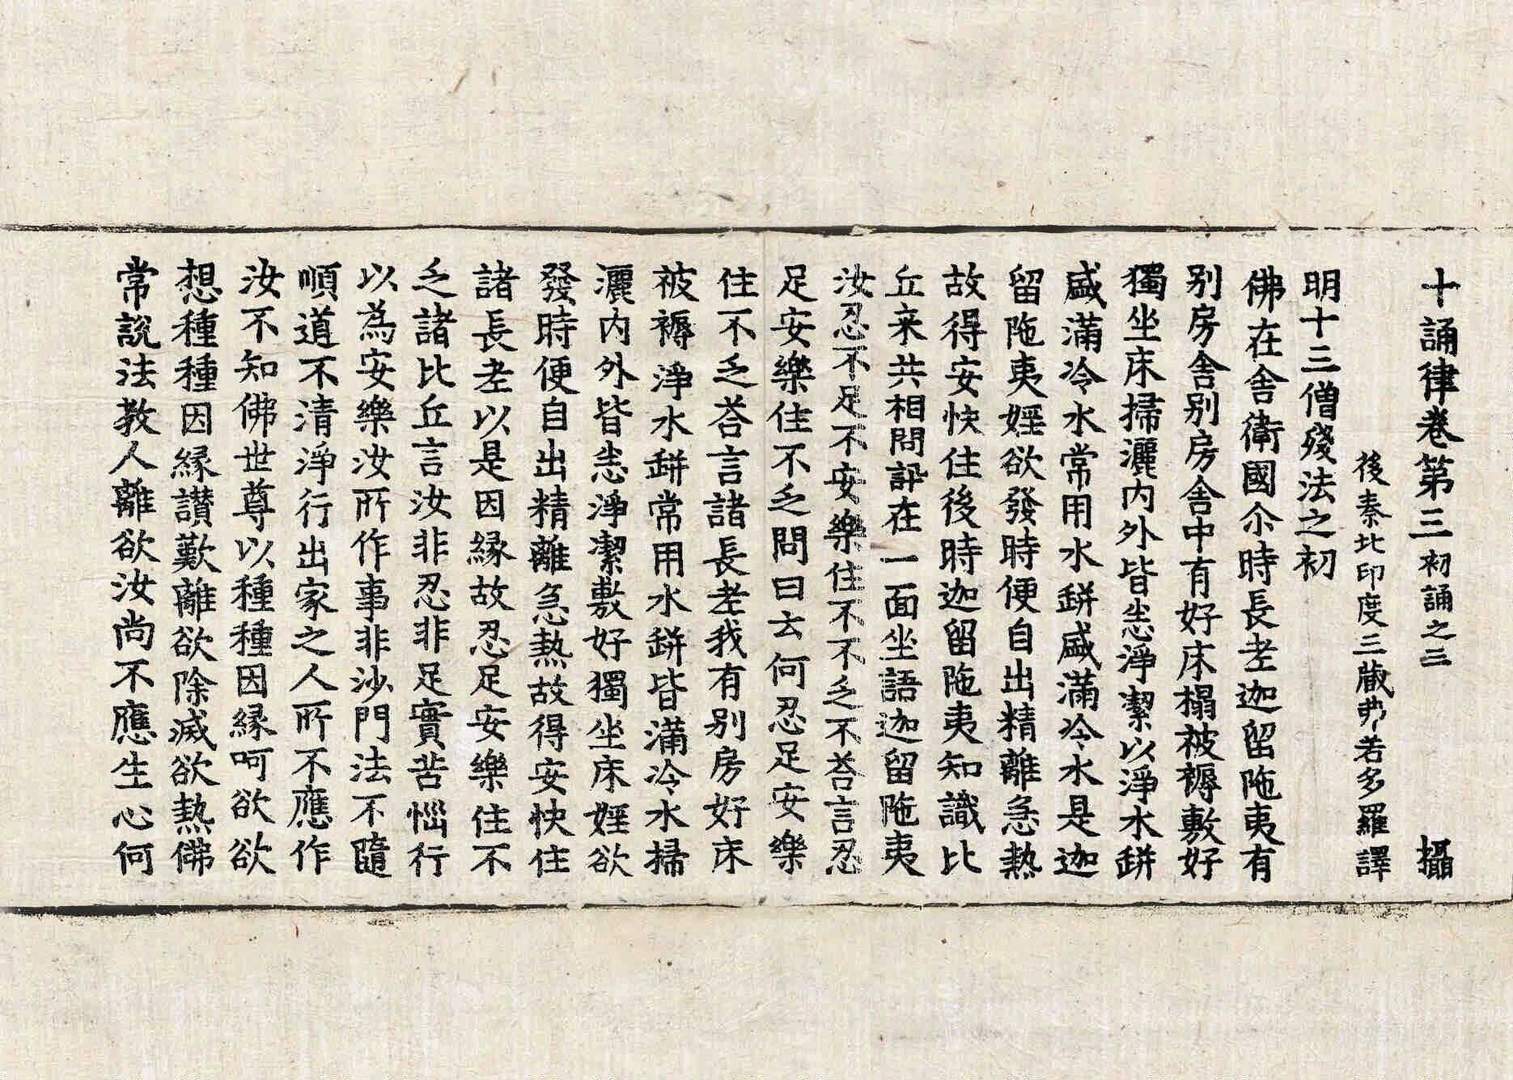 十誦律卷第三 初誦之三 攝
後秦北印度三藏弗若多羅譯
明十三僧殘法之初
佛在舍衛國尒時長老迦留陁夷有
別房舍別房舍中有好床榻被褥敷好
獨坐床掃灑內外皆悉淨潔以淨水缾
盛滿冷水常用水缾盛滿冷水是迦
留陁夷婬欲發時便自出精離急熱
故得安快住後時迦留陁夷知識比
丘来共相問訊在一面坐語迦留陁夷
汝忍不足不安樂住不不乏不荅言忍
足安樂住不乏問曰云何忍足安樂
住不乏荅言諸長老我有別房好床
被褥淨水缾常用水缾皆滿冷水掃
灑內外皆悉淨潔敷好獨坐床婬欲
發時便自出精離急熱故得安快住
諸長老以是因緣故忍足安樂住不
乏諸比丘言汝非忍非足實苦惱行
以為安樂汝所作事非沙門法不隨
順道不清淨行出家之人所不應作
汝不知佛世尊以種種因緣呵欲欲
想種種因緣讃歎離欲除滅欲熱佛
常說法教人離欲汝尚不應生心何